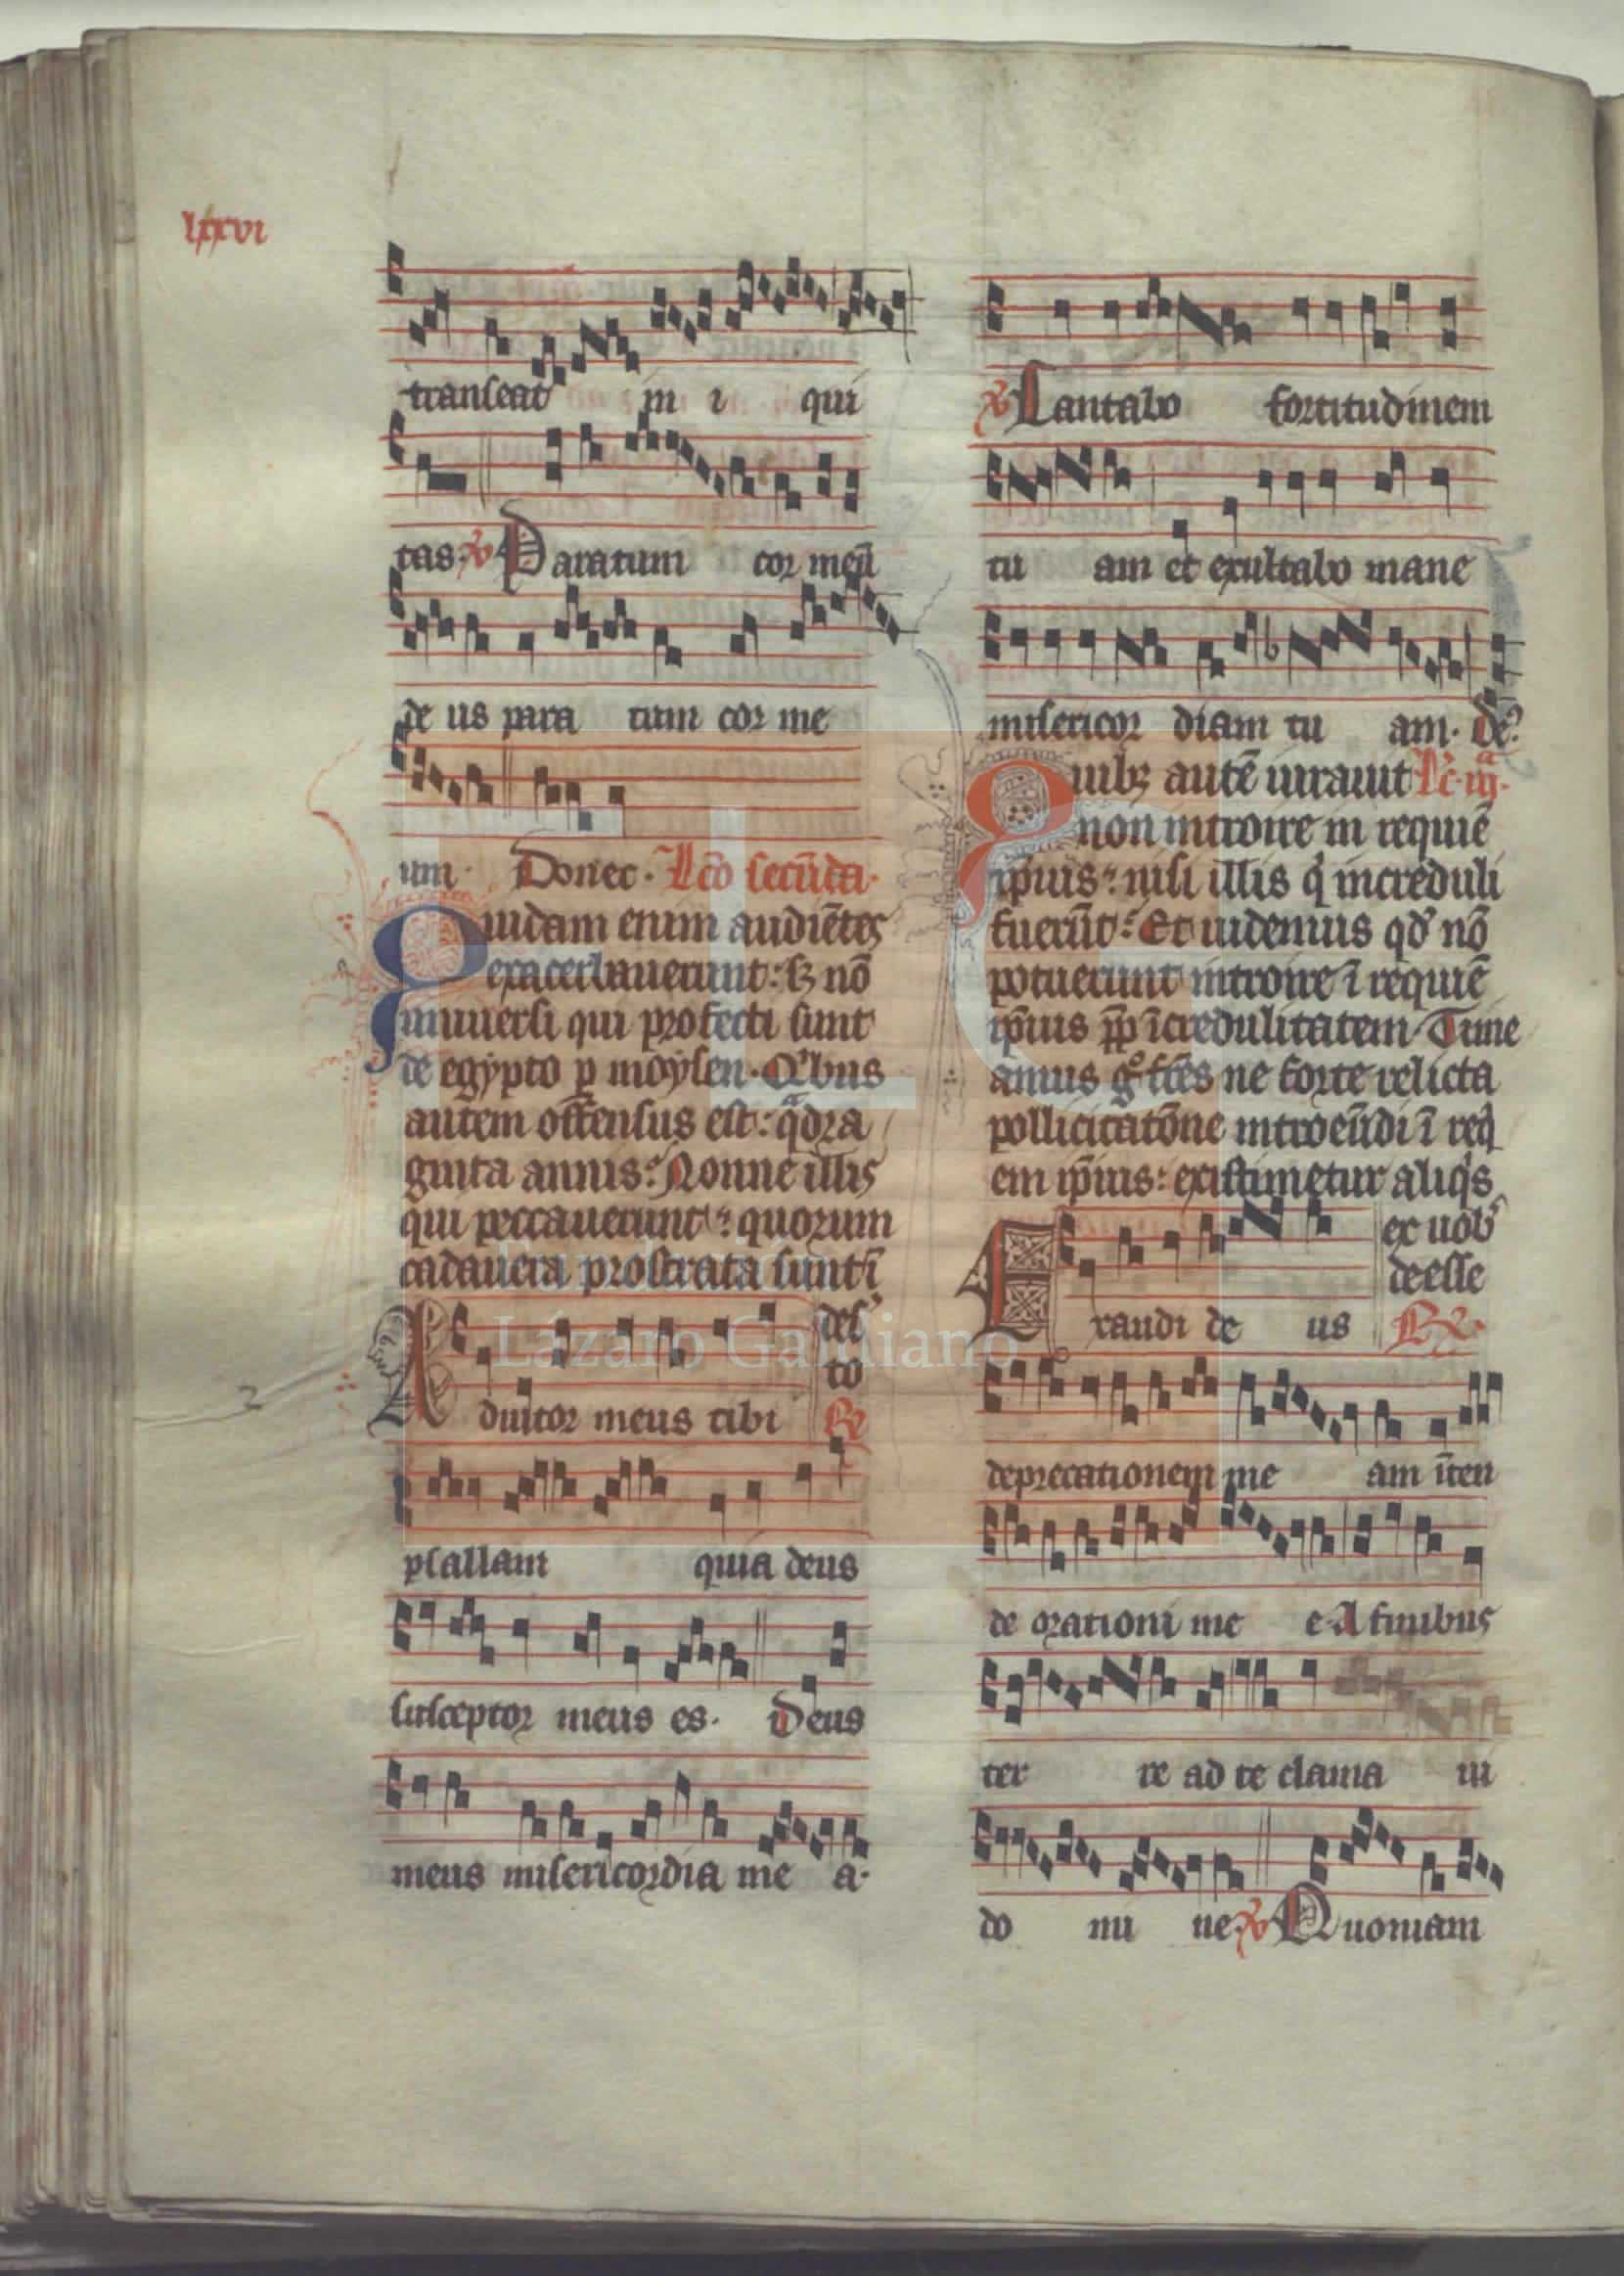 lxxvi
transeat in i qui
tas. v Paratum cor meū
de us para tum cor me
um. Donec. Lc̄o secūda.
Quidam enim audiētes
exacerbauerunt: sꝫ nō
uniuersi qui profecti sunt
de egypto ꝑ moysen. Qͥbus
autem offensus est: qᵃdra
ginta annis: Nonne illis
qui peccauerunt: quorum
cadauera prostrata sunt ī
des'
to
Adiutor meus tibi R
psallam quia deus
susceptor meus es. Deus
meus misericordia me a.
v Cantabo fortitudinem
tu am et exultabo mane
misericor diam tu am. de?
Quibꝫ autē iurauit Lc̄. iijᵃ.
non introire in requiē
ip̄ius: nisi illis qͥ increduli
fuerūt: Et uidemus qd' nō
potuerunt introire ī requiē
ip̄ius ꝓp̄ īcredulitatem. Time
amus gͦ fr̄es ne forte relicta
pollicitatōne introeūdi ī reqͥ
em ip̄ius: existimetur aliqͥs
ex uob'
deesse
Exaudi de us R.
deprecationem me am īten
de orationi me e. A finibus
ter re ad te clama ui
do mi ne. v Quoniam
Lázaro Galdiano